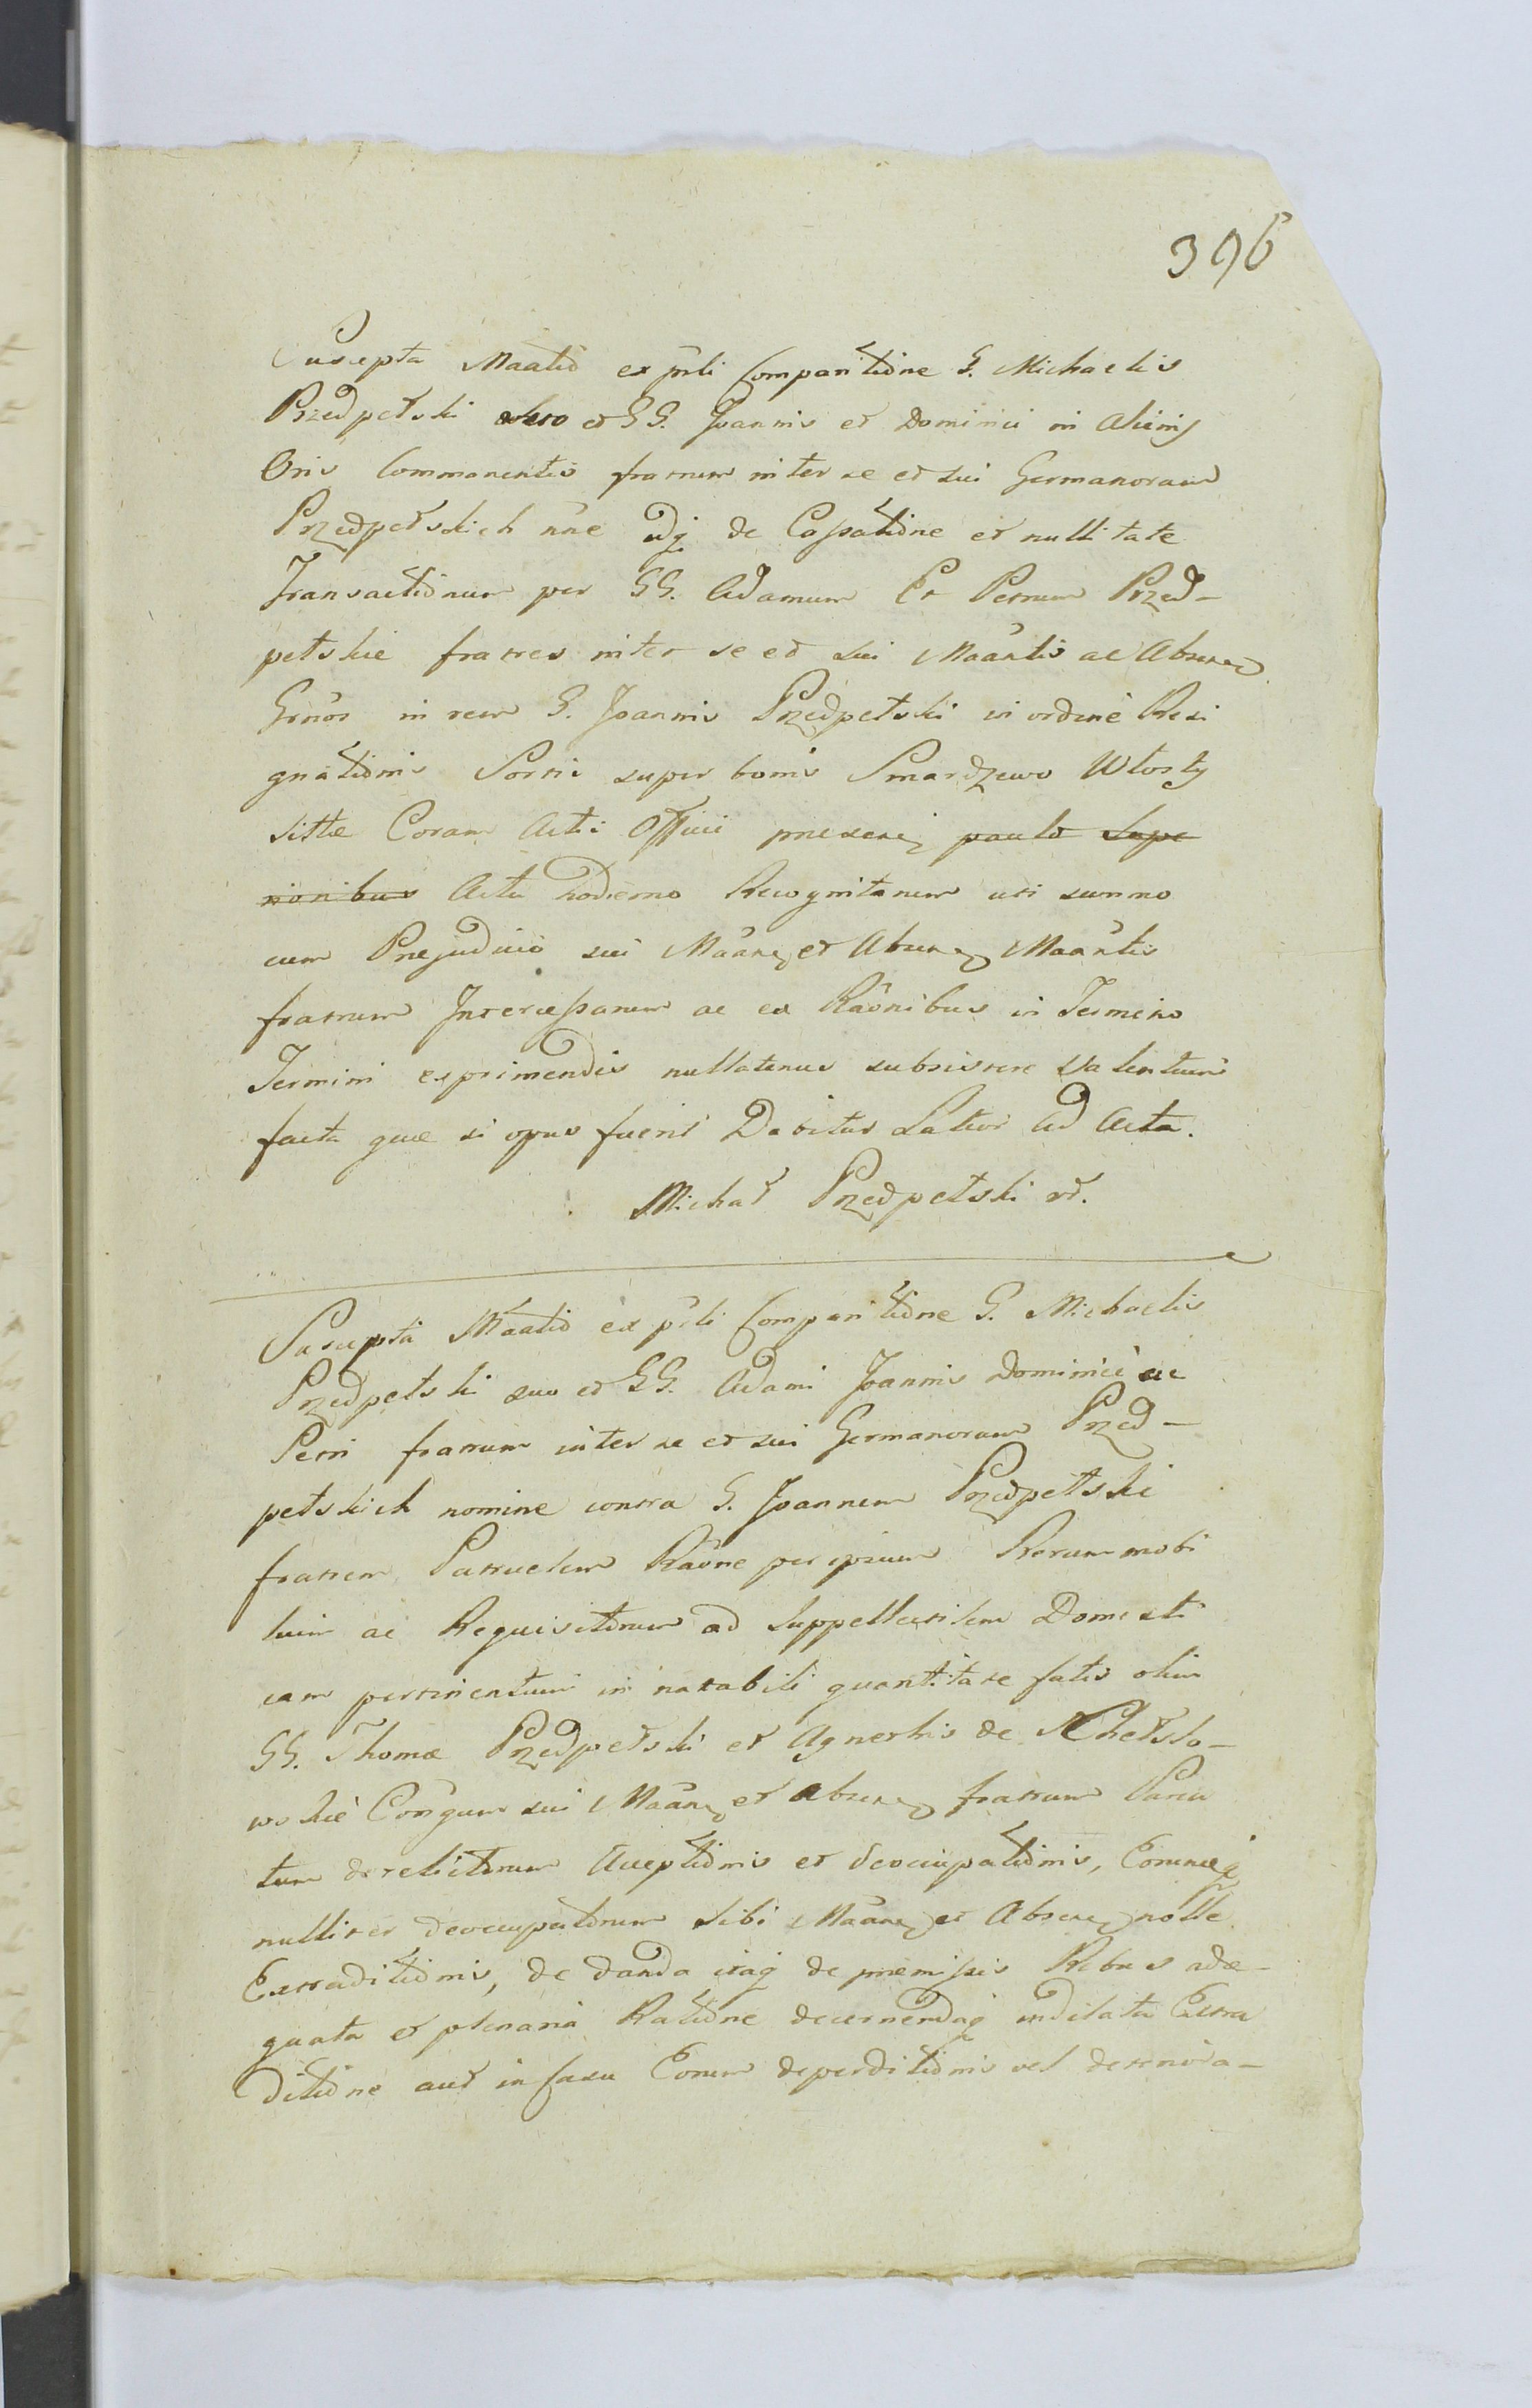 396
Suscepta Maãtio ex psli Comparitiõne G. Michaelis
Przedpełski et GG. Joannis et Dominici in Alienis
Oris Commanentis fratrum inter se et sui Germanorum
Przedpełskich nne de Cassatiõne et nullitate
Transactiõnum per GG. Adamum Et Petrum Przed-
pełskie fratres inter se et sui Maãntis ac Absen
Grnõs in rem G. Joannis Przedpełski in ordine Resi
gnatiõnis Sortis super bonis Smardzewo Włosty
sittæ Coram Actis Officii præsen paulo supe
rioribus Actu hodierno Recognitarum uti summo
cum Præjudicio sui Maãn et Absen Maãntis
fratrum Intercessarum ac ex Raõnibus in Termino
Termini exprimendis nullatenus subsistere valentium
facta quæ si opus fuerit Dabitur Latior Ad Acta.
Michał Przedpełski
Suscepta Maãtio ex psli Comparitiõne G. Michaelis
Przedpełski suo et GG. Adami Joannis Dominici ac
Petri fratrum inter se et sui Germanorum Przed-
pełskich nomine contra G. Joannem Przedpełski
fratrem Patruelem Raõne per ipsum Rerum mobi
lium ac Requisitorum ad Suppellectilem Domesti
cam pertinentium in notabili quantitate fatis olim
GG. Thomæ Przedpełski et Agnethis de Chełsto-
wskie Conjgum sui Maãn et absen fratrum Paren
tum derelictorum Acceptiõnis et deoccupatiõnis, Eorumq
nulliter deoccupatorum sibi Maãn et Absen nolle
Extraditiõnis, de danda itaq de præmissis Rebus adæ-
quata et plenaria Ratiõne decernendaq indilata Extra
ditiõne aut in Casu Eorum deperditiõnis vel deteriora-